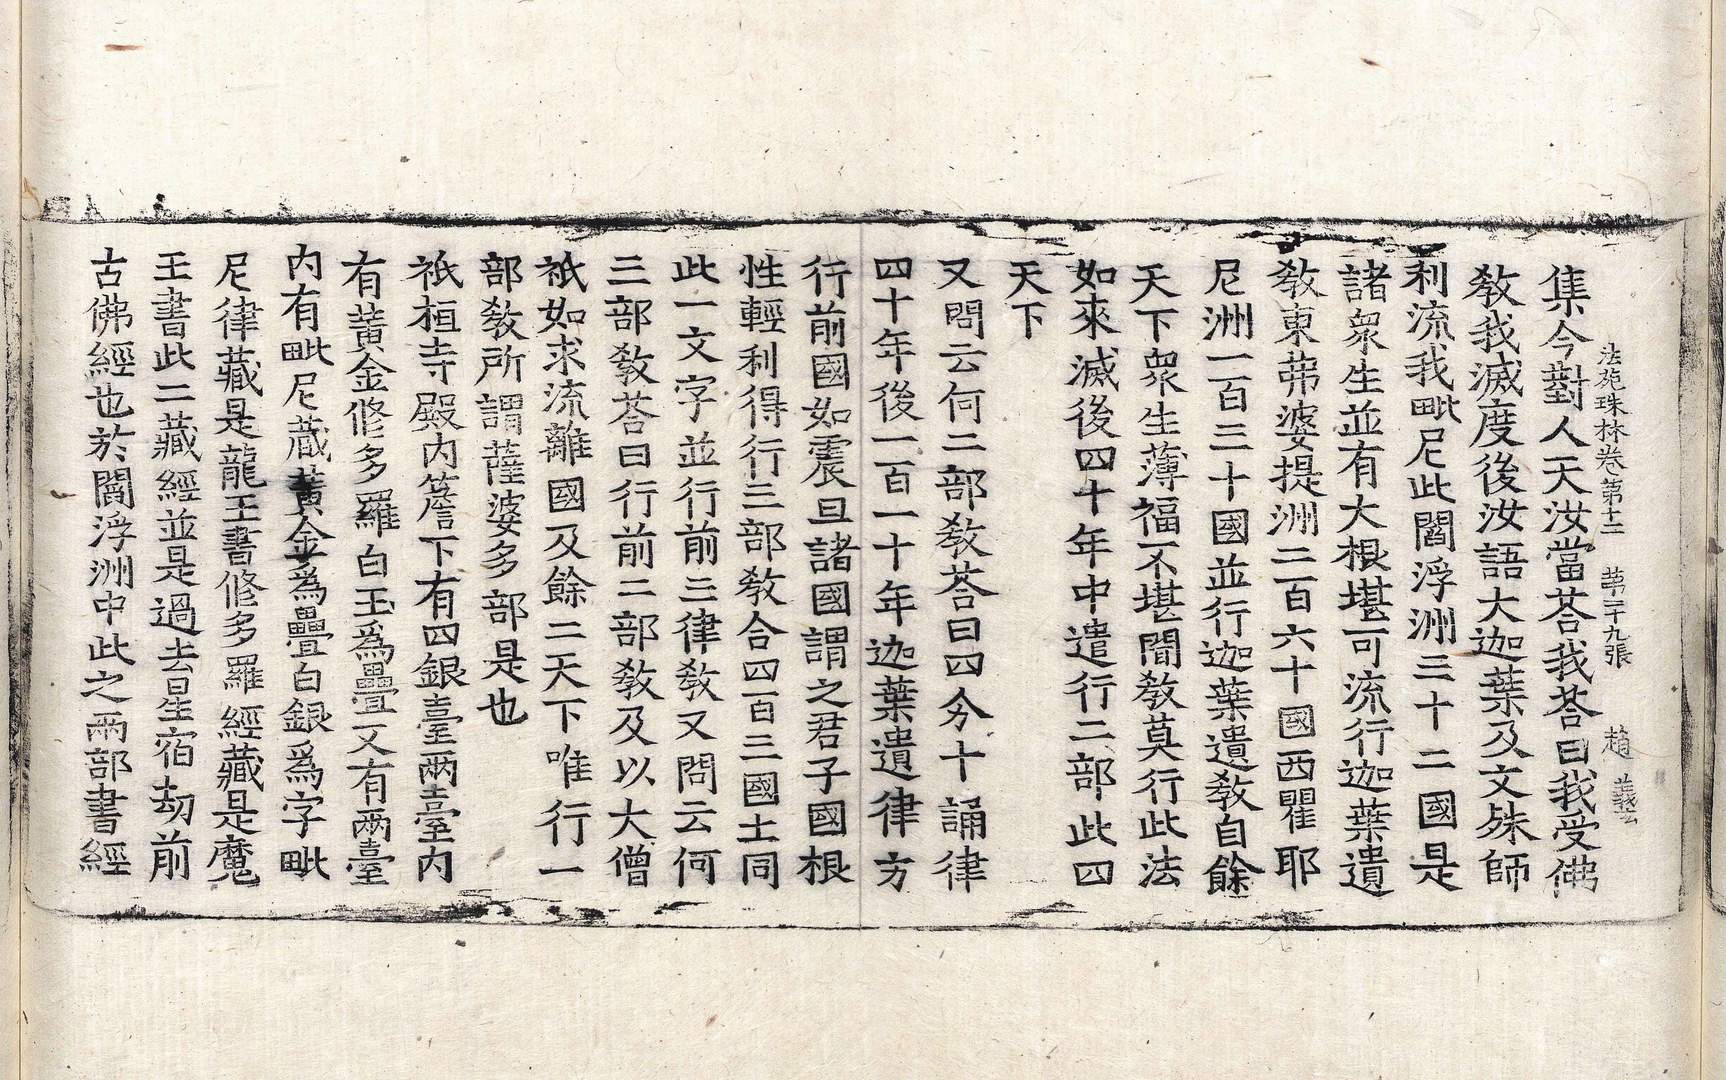 法苑珠林卷第十二 第二十九張 趙 義
集今對人天汝當荅我荅曰我受佛
教我滅度後汝語大迦葉及文殊師
利流我毗尼此閻浮洲三十二國是
諸衆生並有大根堪可流行迦葉遺
教東弗婆提洲二百六十國西瞿耶
尼洲一百三十國並行迦葉遺教自餘
天下衆生薄福不堪聞教莫行此法
如來滅後四十年中遣行二部此四
天下
又問云何二部教荅曰四分十誦律
四十年後一百一十年迦葉遺律方
行前國如震旦諸國謂之君子國根
性輕利得行三部教合四百三國土同
此一文字並行前三律教又問云何
三部教荅曰行前二部教及以大僧
祇如求流離國及餘二天下唯行一
部教所謂薩婆多部是也
祇桓寺殿內簷下有四銀臺兩臺內
有黃金修多羅白玉爲疊又有兩臺
內有毗尼藏黃金爲疊白銀爲字毗
尼律藏是龍王書修多羅經藏是魔
王書此二藏經並是過去星宿劫前
古佛經也於閻浮洲中此之兩部書經